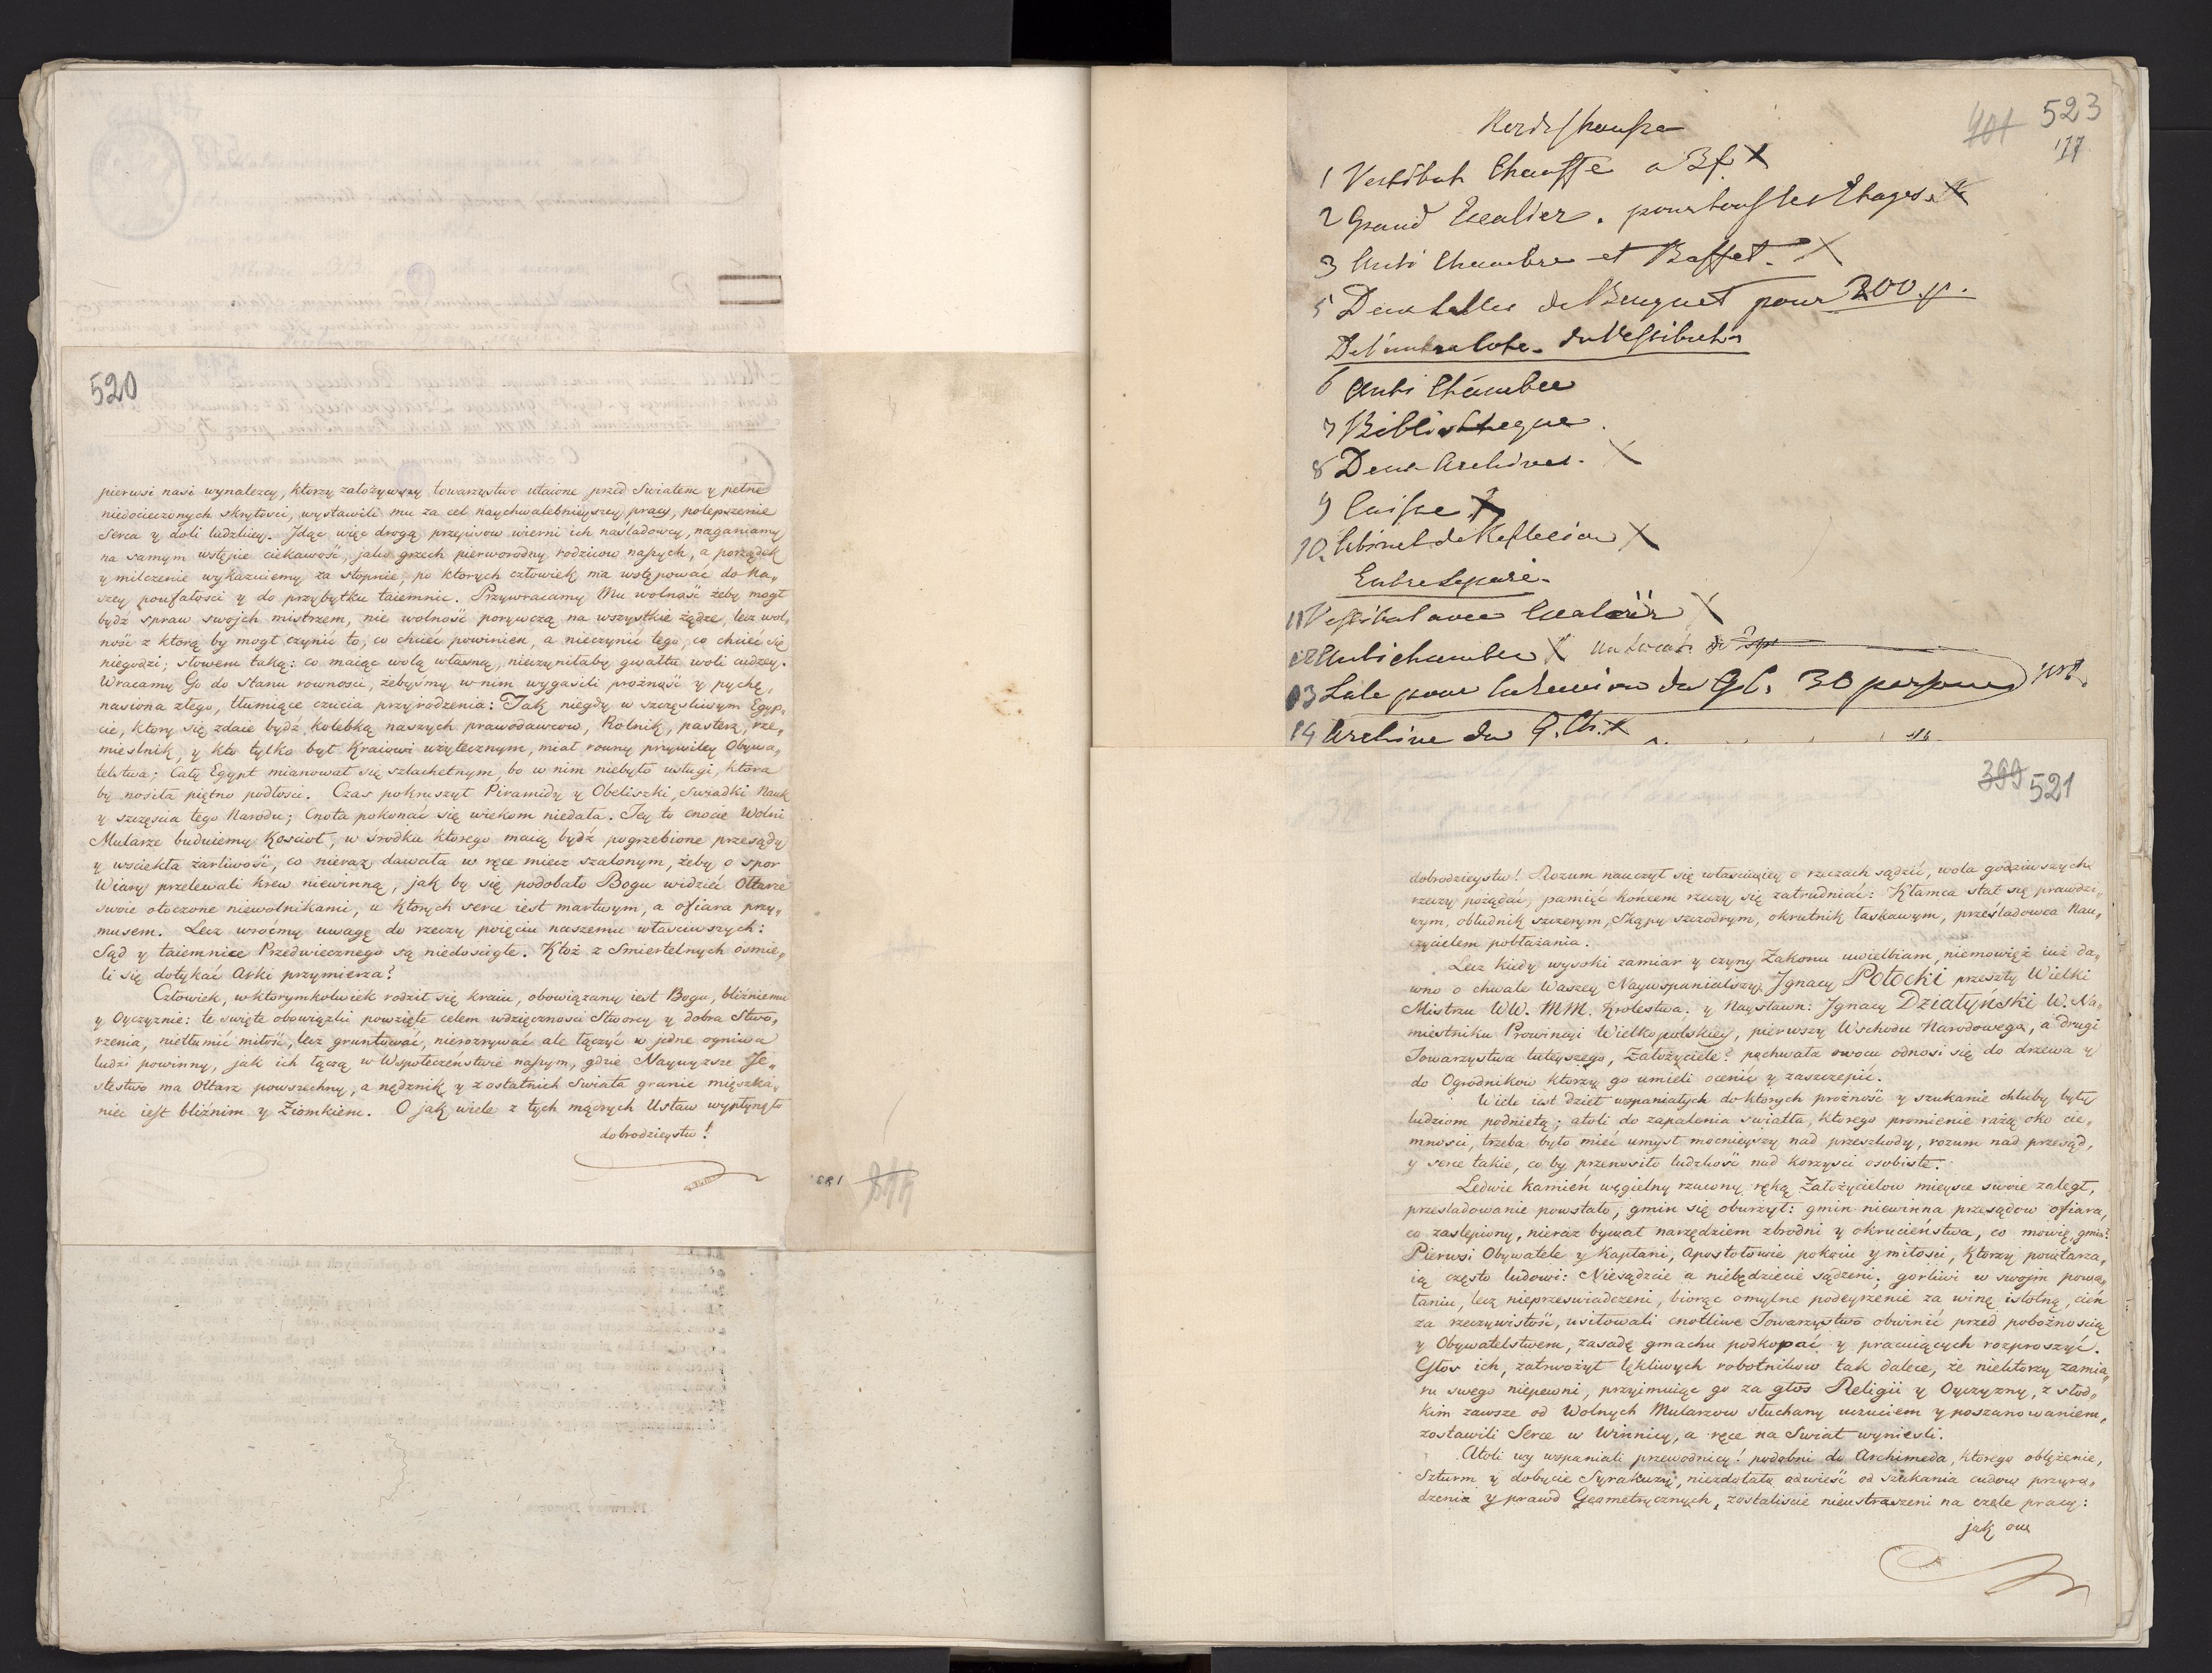 520
pierwsi nasi wynalezcy, ktorzy założywszy towarzystwo utaione przed Swiatem y pełne
niedocieczonych skrytosci, wystawili mu za cel naychwalebnieyszey pracy, polepszenie
Serca y doli ludzkiey. Jdąc więc drogą przepisow wierni ich naśladowcy, naganiamy
na samym wstępie ciekawość, jako grzech pierworodny rodzicow naszych, a porządek
y milczenie wykazuiemy za stopnie, po ktorych człowiek ma wstępować do Na„
szey poufałosci y do przybytku taiemnic. Przywracamy Mu wolność żeby mogł
bydź spraw swojch mistrzem, nie wolność porywczą na wszystkie żądze, lecz wol„
ność z ktorą by mogł czynić to, co chcieć powinien, a nieczynić tego, co chcieć się
niegodzi; słowem taką: co maiąc wolą własną, nieczyniłaby gwałtu woli cudzey.
Wracamy Go do stanu rownosci, żebyśmy w nim wygasili prożność y pychę,
nasiona złego, tłumiące czucia przyrodzenia: Tak niegdy w szczęsliwym Egyp„
cie, ktory się zdaie bydź kolebką naszych prawodawcow, Rolnik, pasterz, rze„
mieslnik, y kto tylko był Kraiowi użytecznym, miał rowny przywiley Obywa„
telstwa; Cały Egypt mianował się szlachetnym, bo w nim niebyło usługi, ktora
by nosiła piętno podłosci. Czas pokruszył Piramidy y Obeliszki, swiadki Nauk
y szczęscia tego Narodu; Cnota pokonać się wiekom niedała. Tey to cnocie Wolni
Mularze buduiemy Kosciół, w środku ktorego maią bydź pogrzebione przesądy
y wsciekła żarliwość, co nieraz dawała w ręce miecz szalonym, żeby o spor
Wiary przelewali krew niewinną, jak by się podobało Bogu widzieć Ołtarze
swoie otoczone niewolnikami, u ktorych serce iest martwym, a ofiara przy„
musem. Lecz wroćmy uwagę do rzeczy poięciu naszemu właściwszych:
Sąd y taiemnice Przedwiecznego są niedoscigłe. Ktoż z Smiertelnych osmie„
li się dotykać Arki przymierza?
Człowiek, w ktorymkolwiek rodził się kraiu, obowiązany iest Bogu, bliźniemu
y Oyczyznie: te święte obowiązki powzięte celem wdzięcznosci Stworcy y dobra Stwo„
rzenia, nietłumić miłość, lecz gruntować, nierozrywać ale łączyć w jedne ogniwa
ludzi powinny, jak ich łączą w Wspołeczeństwie naszym, gdzie Naywyższe Je„
stestwo ma Ołtarz powszechny, a nędznik y z ostatnich Swiata granic mięszka„
niec iest bliźnim y Ziomkiem. O jak wiele z tych mądrych Ustaw wypłynęło
dobrodzieystw!
523
401
177
1 Vestibuh Chauffe a Bf. X
2 Grand Escalier. pour touf les Etages. X
3 Anti Chambre et Baffet. X
5 Deux Salles de Benquet pour 200 p.
De l'autre Cote. du Vestibule
6 Anti Chambre
7 Bibliotheque.
8 Deux Archives. X
9 Caisse X
10. Cabinet de Reflecion X
Entre Separé.
11 Vestibul avec Escalier X
12 Antichambre X
13 Sale pour la Reunion du G.O. 30 persones
14 Archive du G. Ch. X
399 521
dobrodzieystw! Rozum nauczył się właściwiey o rzeczach sądzić, wola godziwszych
rzeczy pożądać, pamięć końcem rzeczy się zatrudniać: Kłamca stał się prawdzi„
wym, obłudnik szczerym, Skąpy szczodrym, okrutnik łaskawym, prześladowca Nau„
czycielem pobłażania.
Lecz kiedy wysoki zamiar y czyny Zakonu uwielbiam, niemowięż iuż da„
wno o chwale Waszey Naywspanialszy Jgnacy Potocki przeszły Wielki
Mistrzu WW. MM. Krolestwa; y Naysławn: Jgnacy Działyński W. Na„
miestniku Prowincyi Wielkopolskiey, pierwszy Wschodu Narodowego, a drugi
Towarzystwa tuteyszego, Założyciele? pochwała owocu odnosi się do drzewa y
do Ogrodnikow ktorzy go umieli ocenić y zaszczepić.
Wiele iest dzieł wspaniałych do ktorych prożność y szukanie chluby były
ludziom podnietą; atoli do zapalenia swiatła, ktorego promienie rażą oko cie„
mnosci, trzeba było mieć umysł mocnieyszy nad przeszkody, rozum nad przesąd,
y serce takie, co by przenosiło ludzkość nad korzysci osobiste.
Ledwie kamień węgielny rzucony ręką Założycielow mieysce swoie zaległ,
prześladowanie powstało, gmin się oburzył: gmin niewinna przesądow ofiara,
co zaslepiony, nieraz bywał narzędziem zbrodni y okrucieństwa, co mowię, gmin?
Pierwsi Obywatele y Kapłani, Apostołowie pokoiu y miłosci, ktorzy powtarza„
ią często ludowi: Niesądzcie a niebędziecie sądzeni; gorliwi w swojm powo„
łaniu, lecz nieprzeswiadczeni, biorąc omylne podeyrzenie za winę istotną, cień
za rzeczywistość, usiłowali cnotliwe Towarzystwo obwinić przed pobożnoscią
y Obywatelstwem, zasadę gmachu podkopać y pracuiących rozproszyć.
Głos ich, zatrwożył lękliwych robotnikow tak dalece, że niektorzy zamia„
ru swego niepewni, przyjmuiąc go za głos Religii y Oyczyzny, z słod„
kim zawsze od Wolnych Mularzow słuchany uczuciem y poszanowaniem,
zostawili Serce w Winnicy, a ręce na Swiat wyniesli.
Atoli wy wspaniali przewodnicy! podobni do Archimeda, ktorego oblężenie,
Szturm y dobycie Syrakuzy, niezdołało odwieść od szukania cudow przyro„
dzenia y prawd Geometrycznych, zostaliscie nieustraszeni na czele pracy:
jak on